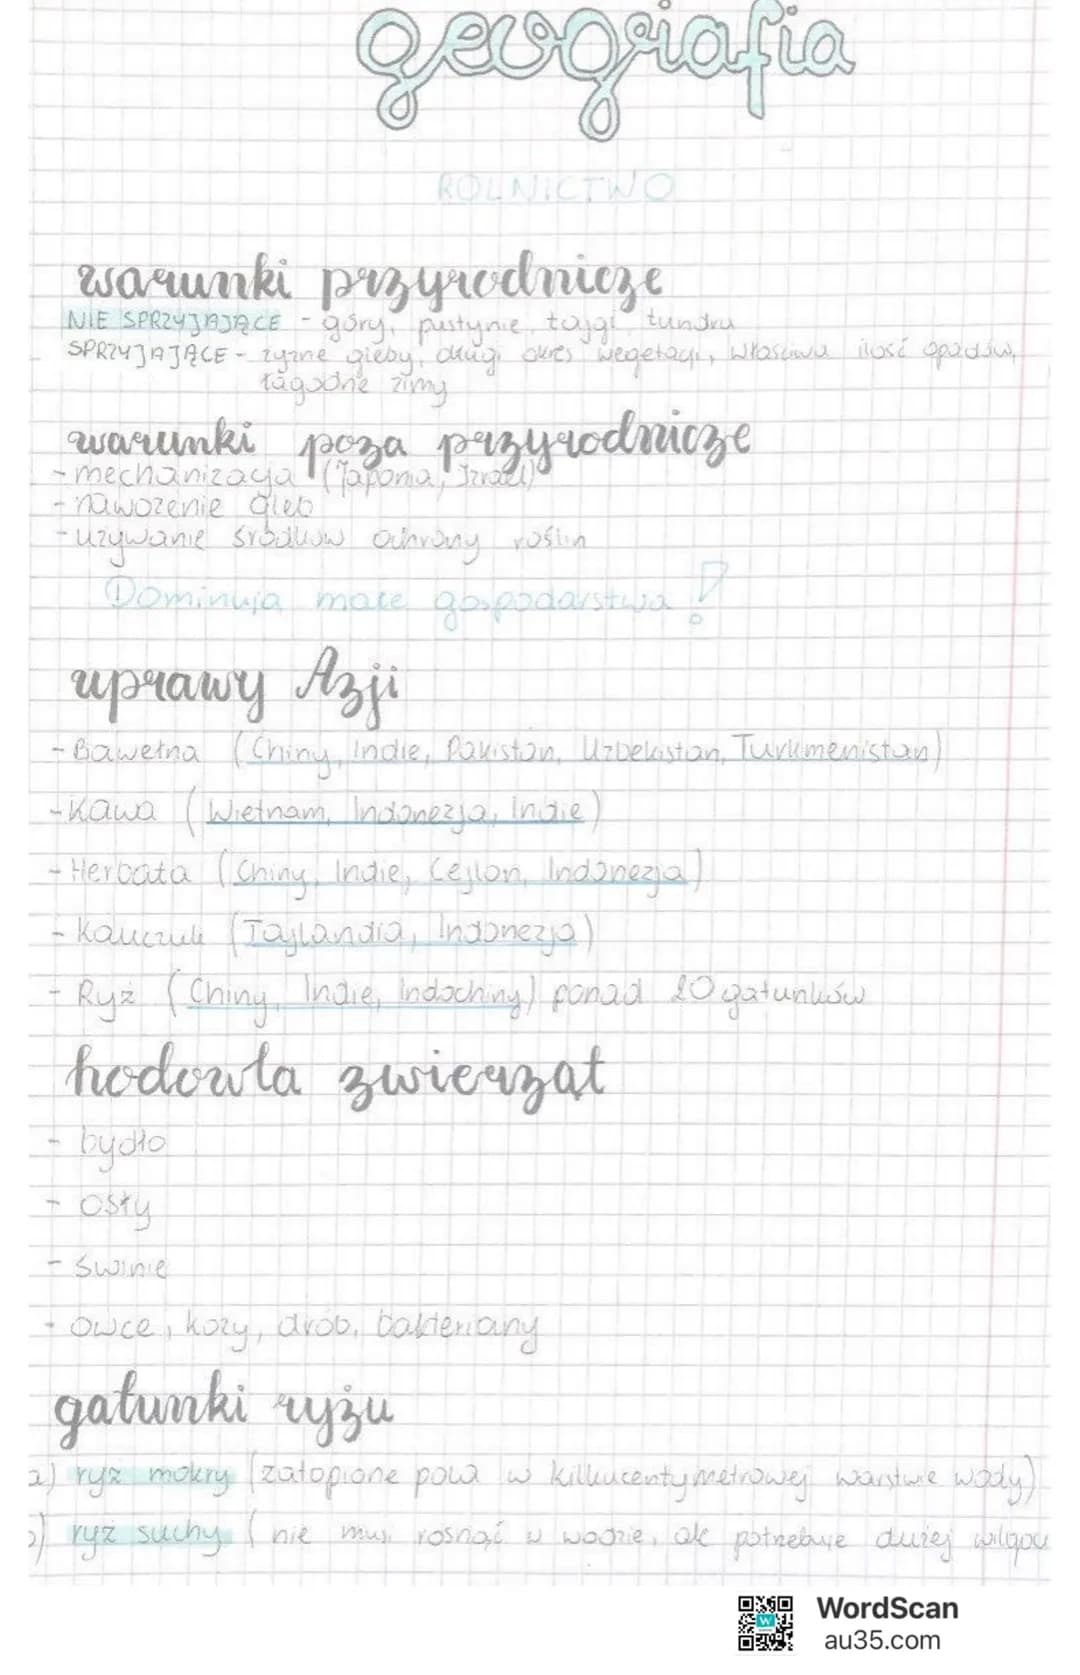 geografia
ROLNICTWO
warunki przyrodnicze
NIE SPRZYJAJĄCE - góry, pustynie, tajgi, tundru
SPRZYJAJĄCE - żyzne gleby, długi okres wegetacji, właściwa ilość opadów,
łagodne zimy
warunki poza przyrodnicze
- mechanizacja (Japonia, Izrael)
- nawożenie gleb
- używanie środków ochrony roślin
Dominują małe gospodarstwa!
uprawy Azji
- Bawełna (Chiny, Indie, Pakistan, Uzbekistan, Turkmenistan)
- Kawa (Wietnam, Indonezja, Indie)
- Herbata (Chiny, Indie, Cejlon, Indonezja)
- Kauczuk (Tajlandia, Indonezja)
- Ryż (Chiny, Indie, Indochiny) ponad 20 gatunków
hodowla zwierząt
- bydło
- osły
- świnie
- owce, kozy, drób, bakteriany
gatunki ryżu
a) ryż mokry (zatopione pola w kilkucentymetrowej warstwie wody)
b) ryż suchy (nie musi rosnąć w wodzie, ale potrzebuje dużej wilgoci
WordScan
au35.com